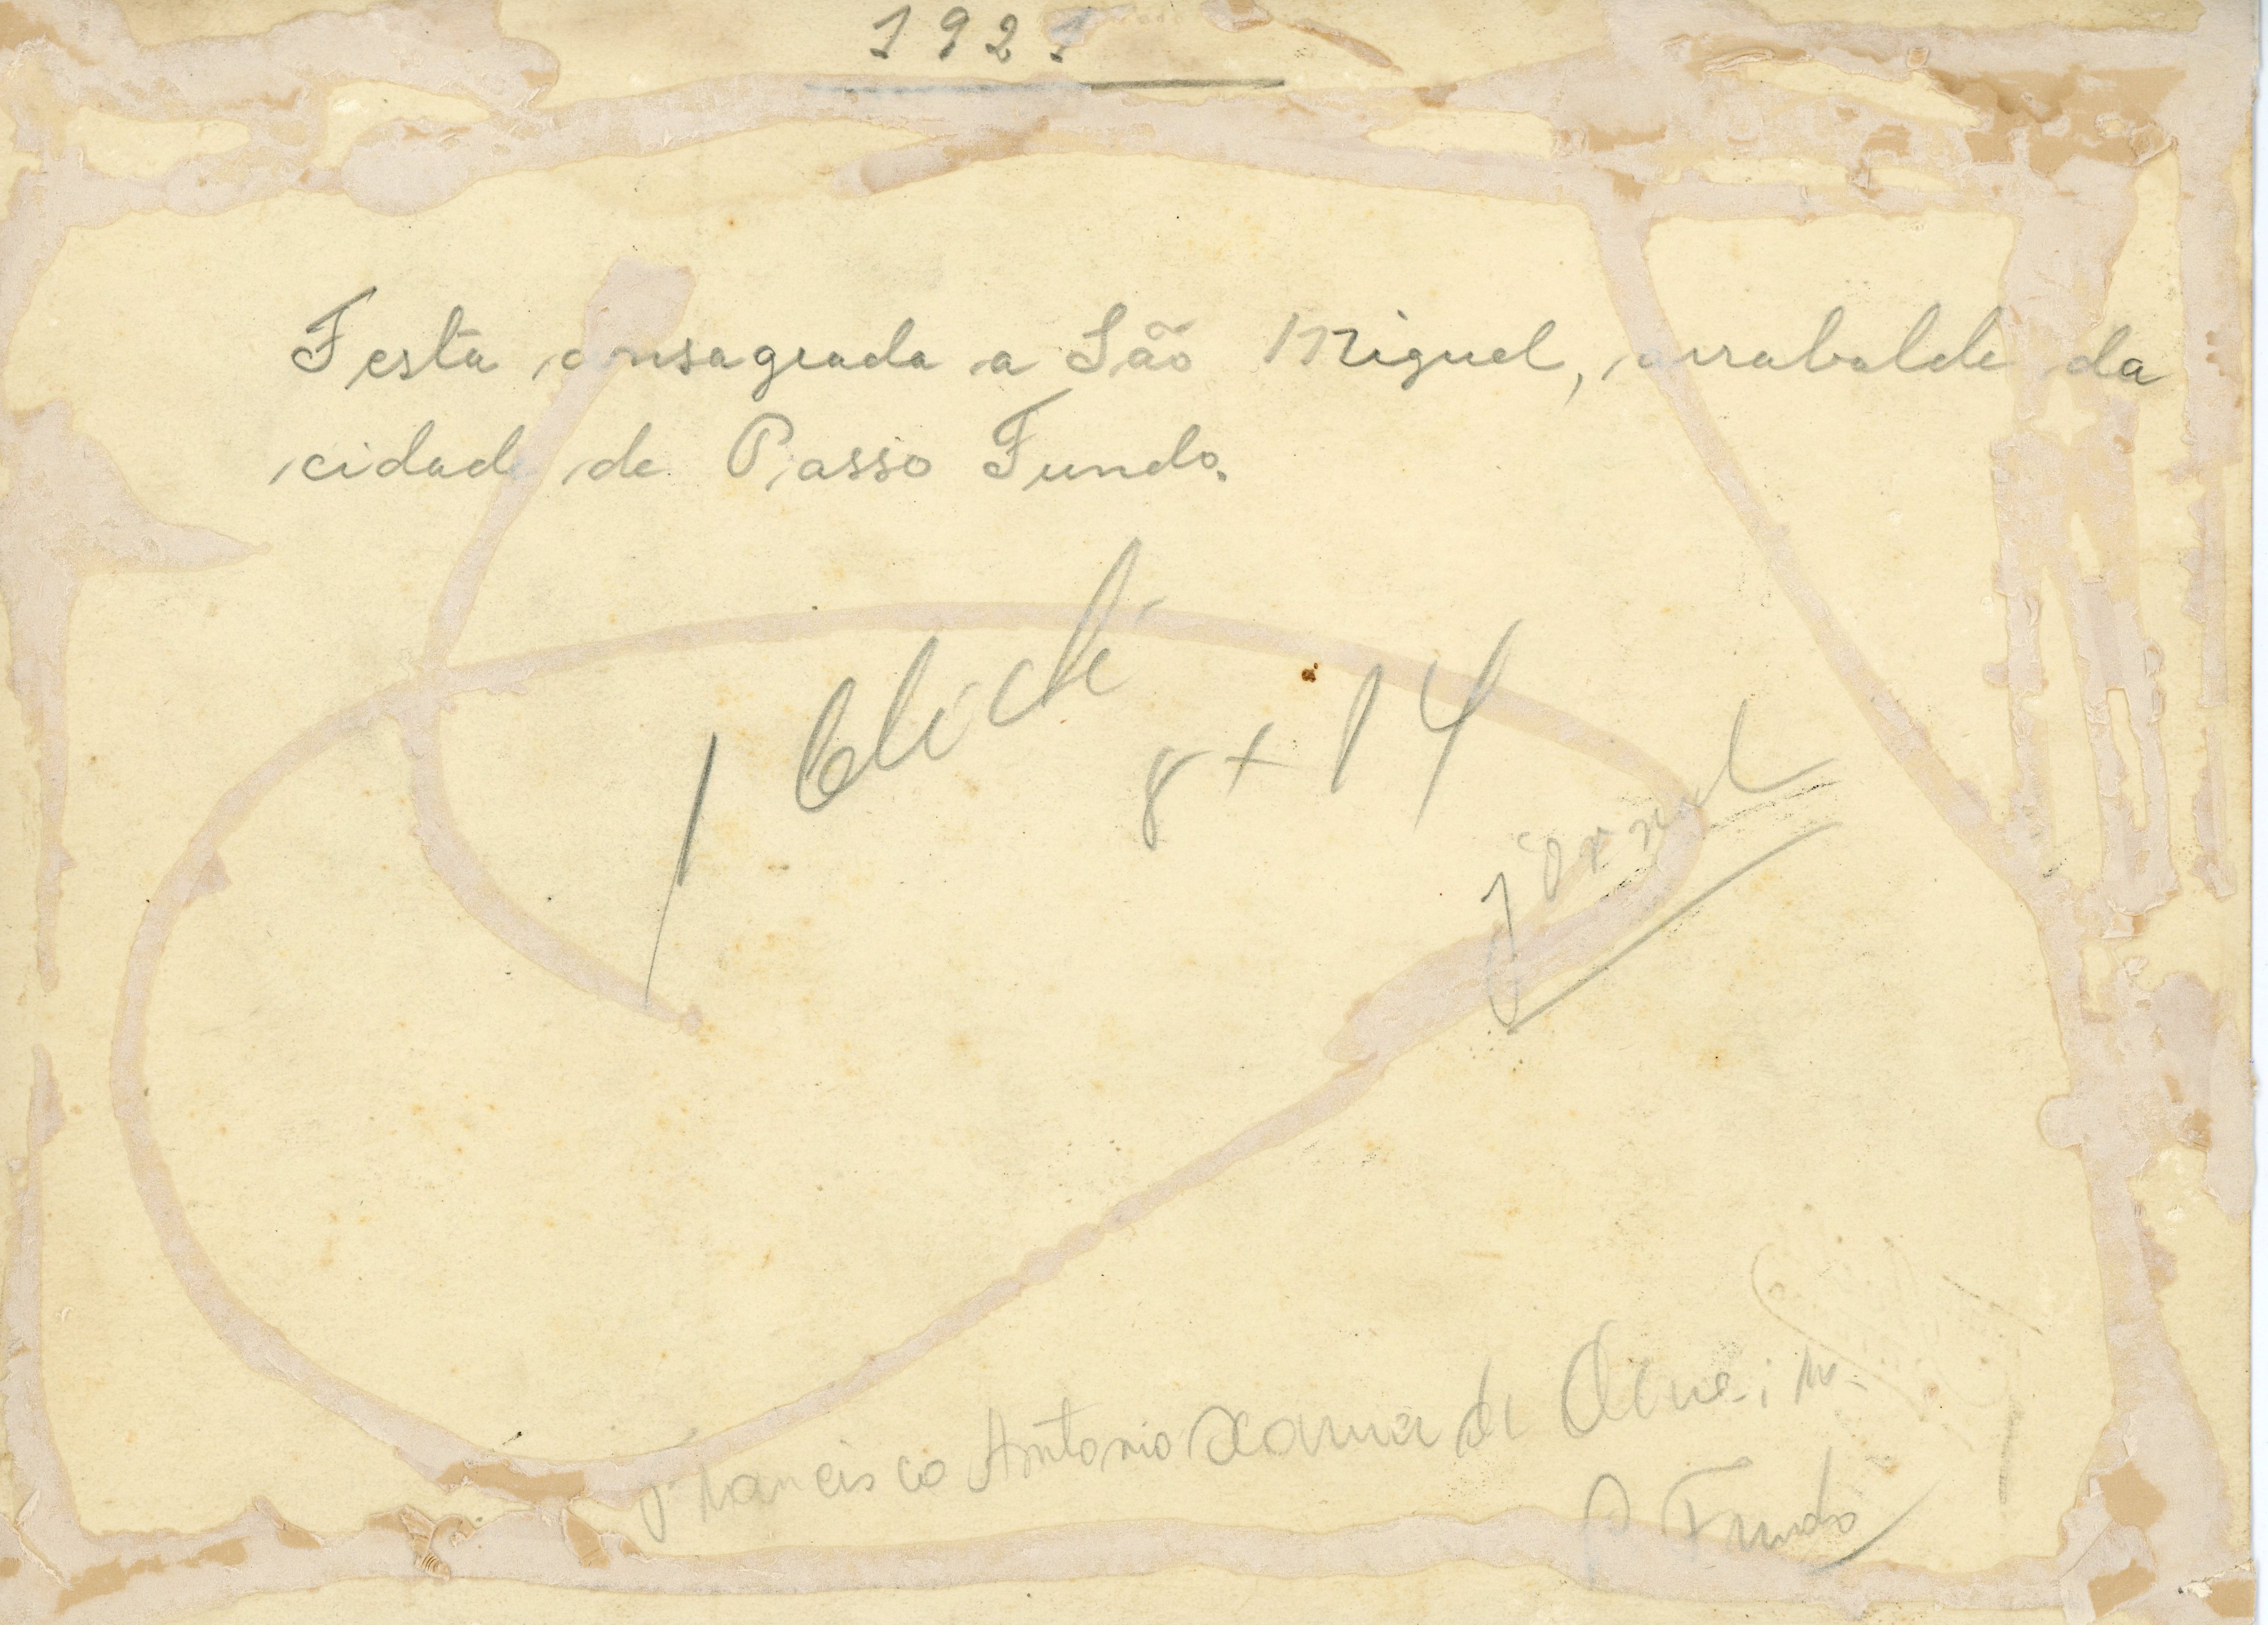 1921
Festa consagrada a São Miguel, arrabalde da
cidade de Passo Fundo.
1 Clichê
8 x 14
Jornal
Francisco Antonio Xavier de Oliveira
P Fundo